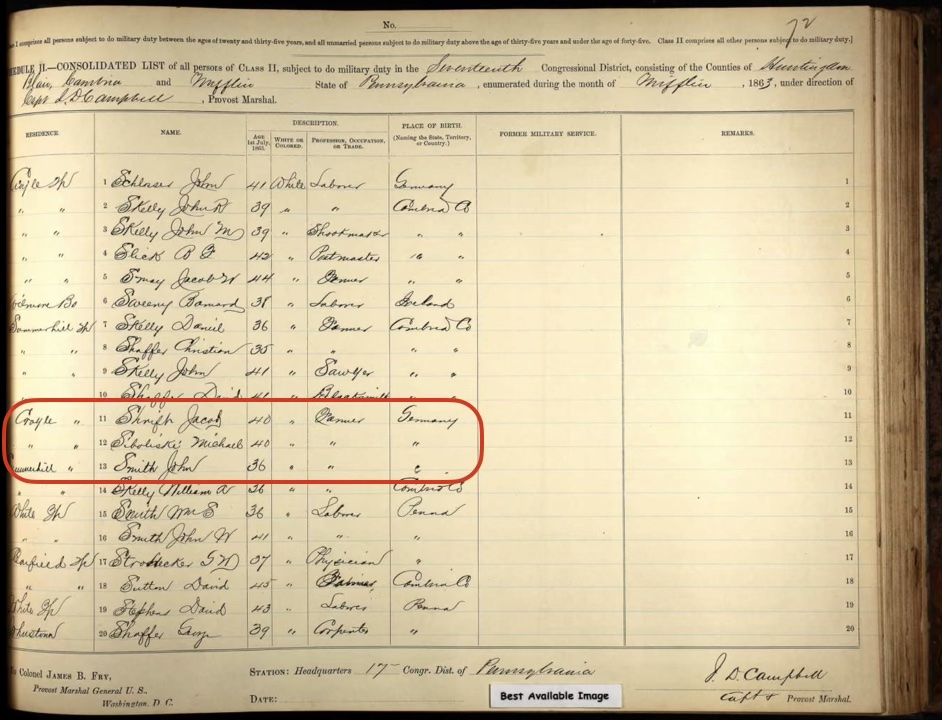 72
No.
comprises all persons subject to do military duty between the ages of twenty and thirty-five years, and all unmarried persons subject to do military duty above the age of thirty-five years and under the age of forty-five. Class II comprises all other persons subject to do military duty.]
SCHEDULE II.—CONSOLIDATED LIST of all persons of CLASS II, subject to do military duty in the Seventeenth Congressional District, consisting of the Counties of Huntingdon
Blair, Cambria and Mifflin State of Pennsylvania, enumerated during the month of Mifflin, 1863, under direction of
Capt J. D. Campbell, Provost Marshal.
RESIDENCE. NAME. DESCRIPTION. AGE 1st July, 1863. WHITE OR COLORED. PROFESSION, OCCUPATION, OR TRADE. PLACE OF BIRTH. (Naming the State, Territory, or Country.) FORMER MILITARY SERVICE. REMARKS.
1 Schlosser John 41 White Laborer Germany 1
" " 2 Skelly John R 39 " " Cambria Co 2
" " 3 Skelly John M 39 " Shoemaker " " 3
" " 4 Slick B F 42 " Postmaster " " 4
" " 5 Smay Jacob W 44 " Farmer " " 5
Wilmore Bo 6 Sweeny Barnard 38 " Laborer Ireland 6
Summerhill Tp 7 Skelly Daniel 36 " Farmer Cambria Co 7
" " 8 Shaffer Christian 35 " " " " 8
" " 9 Skelly John 41 " Sawyer " " 9
10 Shaffer David 41 " Blacksmith " " 10
Croyle " 11 Shrift Jacob 40 " Farmer Germany 11
" " 12 Siboliski Michael 40 " " " 12
Summerhill " 13 Smith John 36 " " " 13
" " 14 Skelly William A 36 " " Cambria Co 14
White Tp 15 Smith Wm S 36 " Laborer Penna 15
" " 16 Smith John W 41 " " " 16
Clearfield Tp 17 Strohecker G W 37 " Physician " 17
" " 18 Sutton David 45 " Farmer Cambria Co 18
White Tp 19 Stephens David 43 " Laborer Penna 19
Johnstown 20 Shaffer George 39 " Carpenter " 20
To Colonel JAMES B. FRY,
Provost Marshal General U. S.,
Washington, D. C.
STATION: Headquarters 17 Congr. Dist. of Pennsylvania
DATE:
J. D. Campbell
Capt & Provost Marshal.
Best Available Image